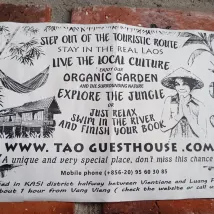 STEP OUT OF THE TOURISTIC ROUTE
STAY IN THE REAL LAOS
LIVE THE LOCAL CULTURE
ENJOY OUR
ORGANIC GARDEN
AND THE SURROUNDING NATURE
EXPLORE THE JUNGLE
OR
JUST RELAX
SWIM IN THE RIVER
AND FINISH YOUR BOOK
WWW. TAO GUESTHOUSE .COM
A unique and very special place, don't miss this chance
Mobile phone (+856-20) 95 60 30 85
in KASI district halfway between Vientiane and Luang P
bout 1 hour from Vang Vieng ( check the website or call